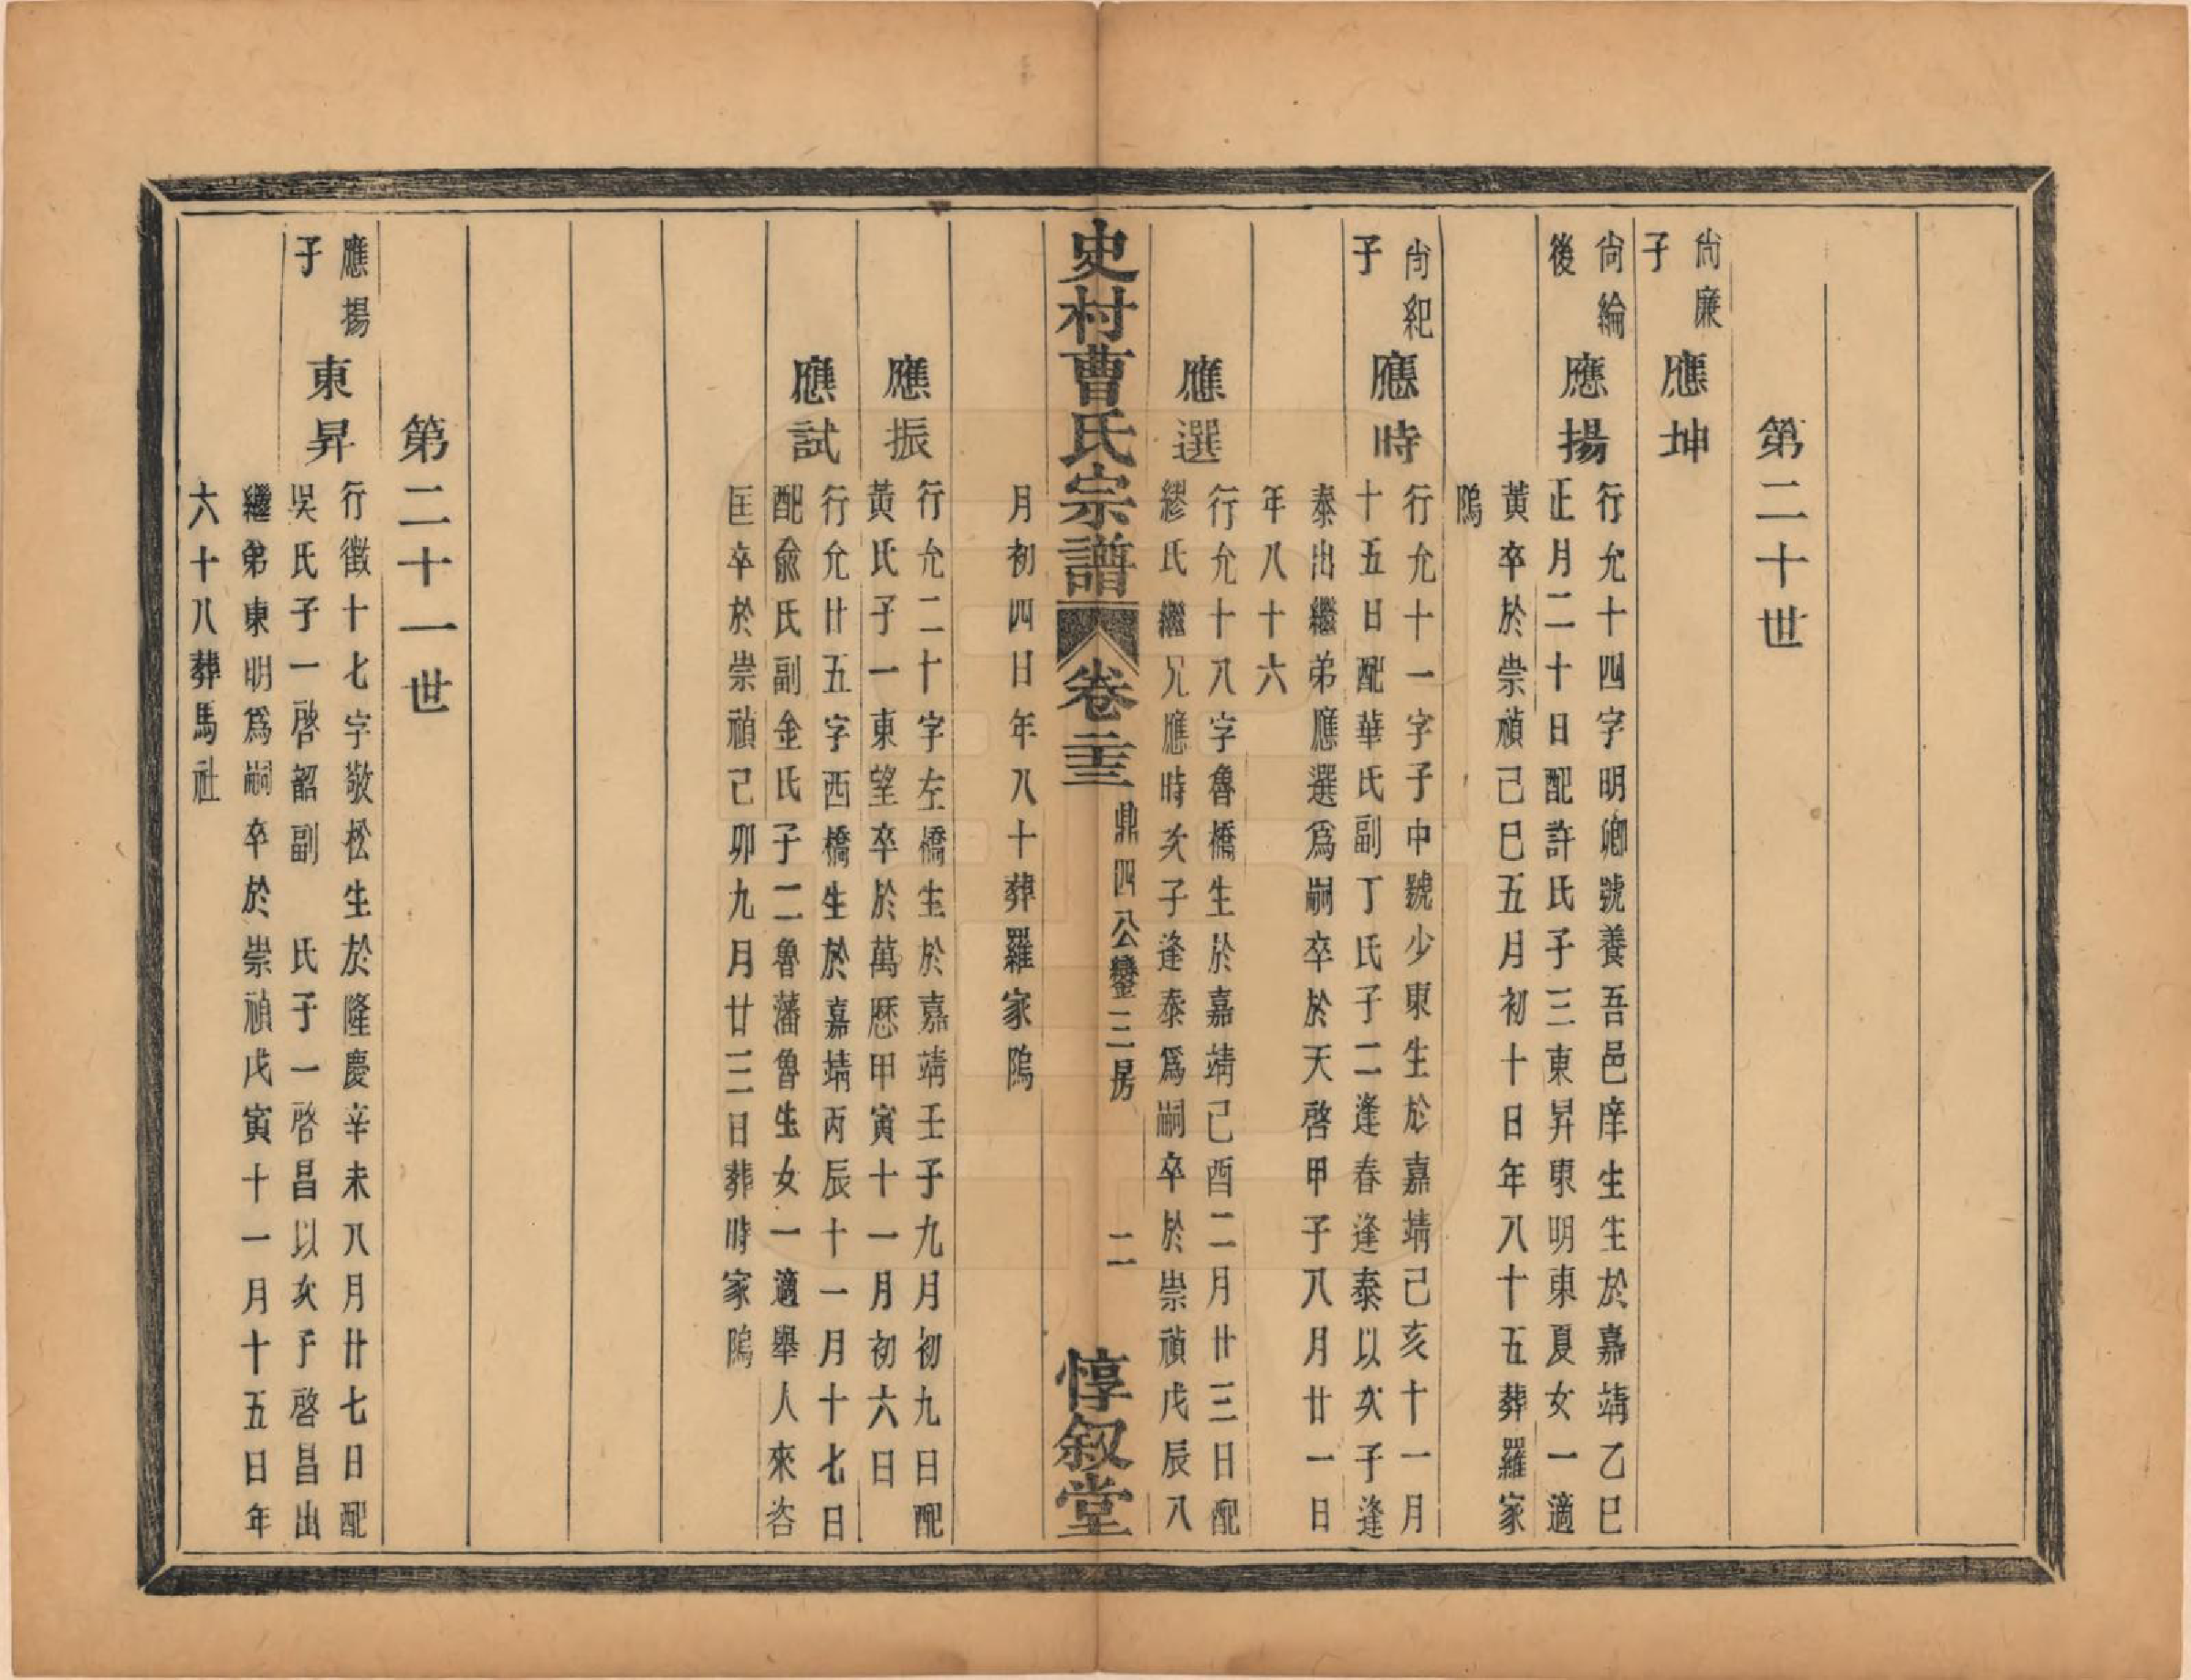 第二十世
尚廉子
應坤
尚綸後
應揚
行允十四字明卿號養吾邑庠生生於嘉靖乙巳
正月二十日配許氏子三東昇東明東夏女一適
黃卒於崇禎己巳五月初十日年八十五葬羅家
隖
尚紀子
應時
行允十一字子中號少東生於嘉靖己亥十一月
十五日配華氏副丁氏子二逢春逢泰以次子逢
泰出繼弟應選爲嗣卒於天啓甲子八月廿一日
年八十六
應選
行允十八字魯橋生於嘉靖己酉二月廿三日配
繆氏繼兄應時次子逢泰爲嗣卒於崇禎戊辰八
史村曹氏宗譜 卷二十三 鼎四公鑾三房 二 惇敘堂
月初四日年八十葬羅家隖
應振
行允二十字左橋生於嘉靖壬子九月初九日配
黃氏子一東望卒於萬歷甲寅十一月初六日
應試
行允廿五字西橋生於嘉靖丙辰十一月十七日
配兪氏副金氏子二魯藩魯生女一適舉人來咨
匡卒於崇禎己卯九月廿三日葬時家隖
第二十一世
應揚子
東昇
行徵十七字敬松生於隆慶辛未八月廿七日配
吳氏子一啓韶副 氏子一啓昌以次子啓昌出
繼弟東明爲嗣卒於崇禎戊寅十一月十五日年
六十八葬馬社